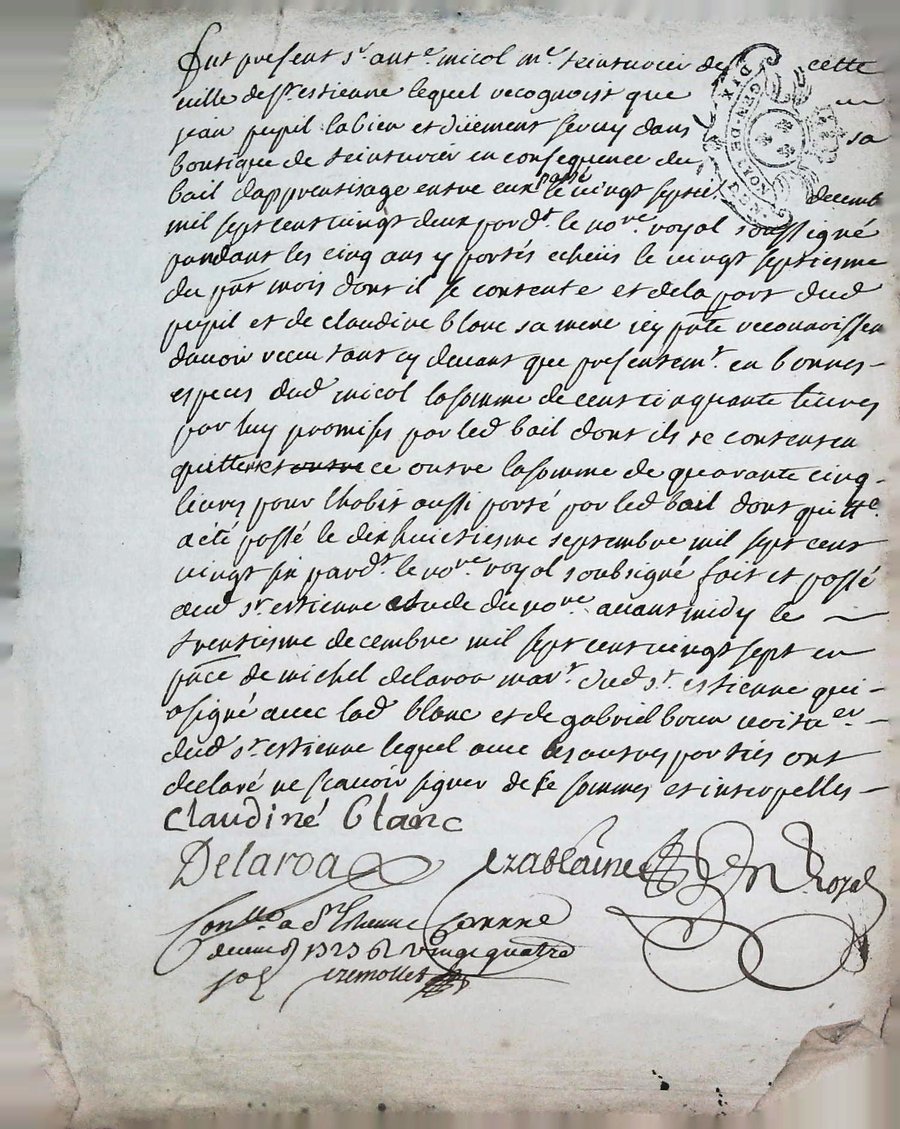 Fut present sr ante micol me teinturier de cette
ville de st estienne lequel recognoist que
jean pupil la bien et düement servy dans sa
boutique de teinturier en consequence du
bail dapprentisage entre eux passé le vingt septie decemb
mil sept cent vingt deux par dt le nore royal soussigné
pandant les cinq ans y portés echeüs le vingt septiesme
du pnt mois dont il se contente et de la part dud
pupil et de claudine blanc sa mere icy pnte reconnoissen
davoir receu tant cy devant que presentemt en bonnes
especes dud micol la somme de cent cinquante livres
par luy promises par led bail dont ils se contenten
quittent outre ce outre la somme de quarante cinq
livres pour lhabit aussi porté par led bail dont quitte
a été passé le dix huictiesme septembre mil sept cent
vingt six par dt le nore royal soubsigné fait et passé
aud st estienne etude du nore avant midy le
trentiesme decembre mil sept cent vingt sept en
pnce de michel delaroa mart dud st estienne qui
a signé avec lad blanc et de gabriel
dud st estienne lequel avec les autres parties ont
declaré ne scavoir signer de ce sommes et interpelles
claudiné blanc
Delaroa
Royal
Conlle a St Estienne
vingt quatre
sols
DIX
GEN. DE LYON